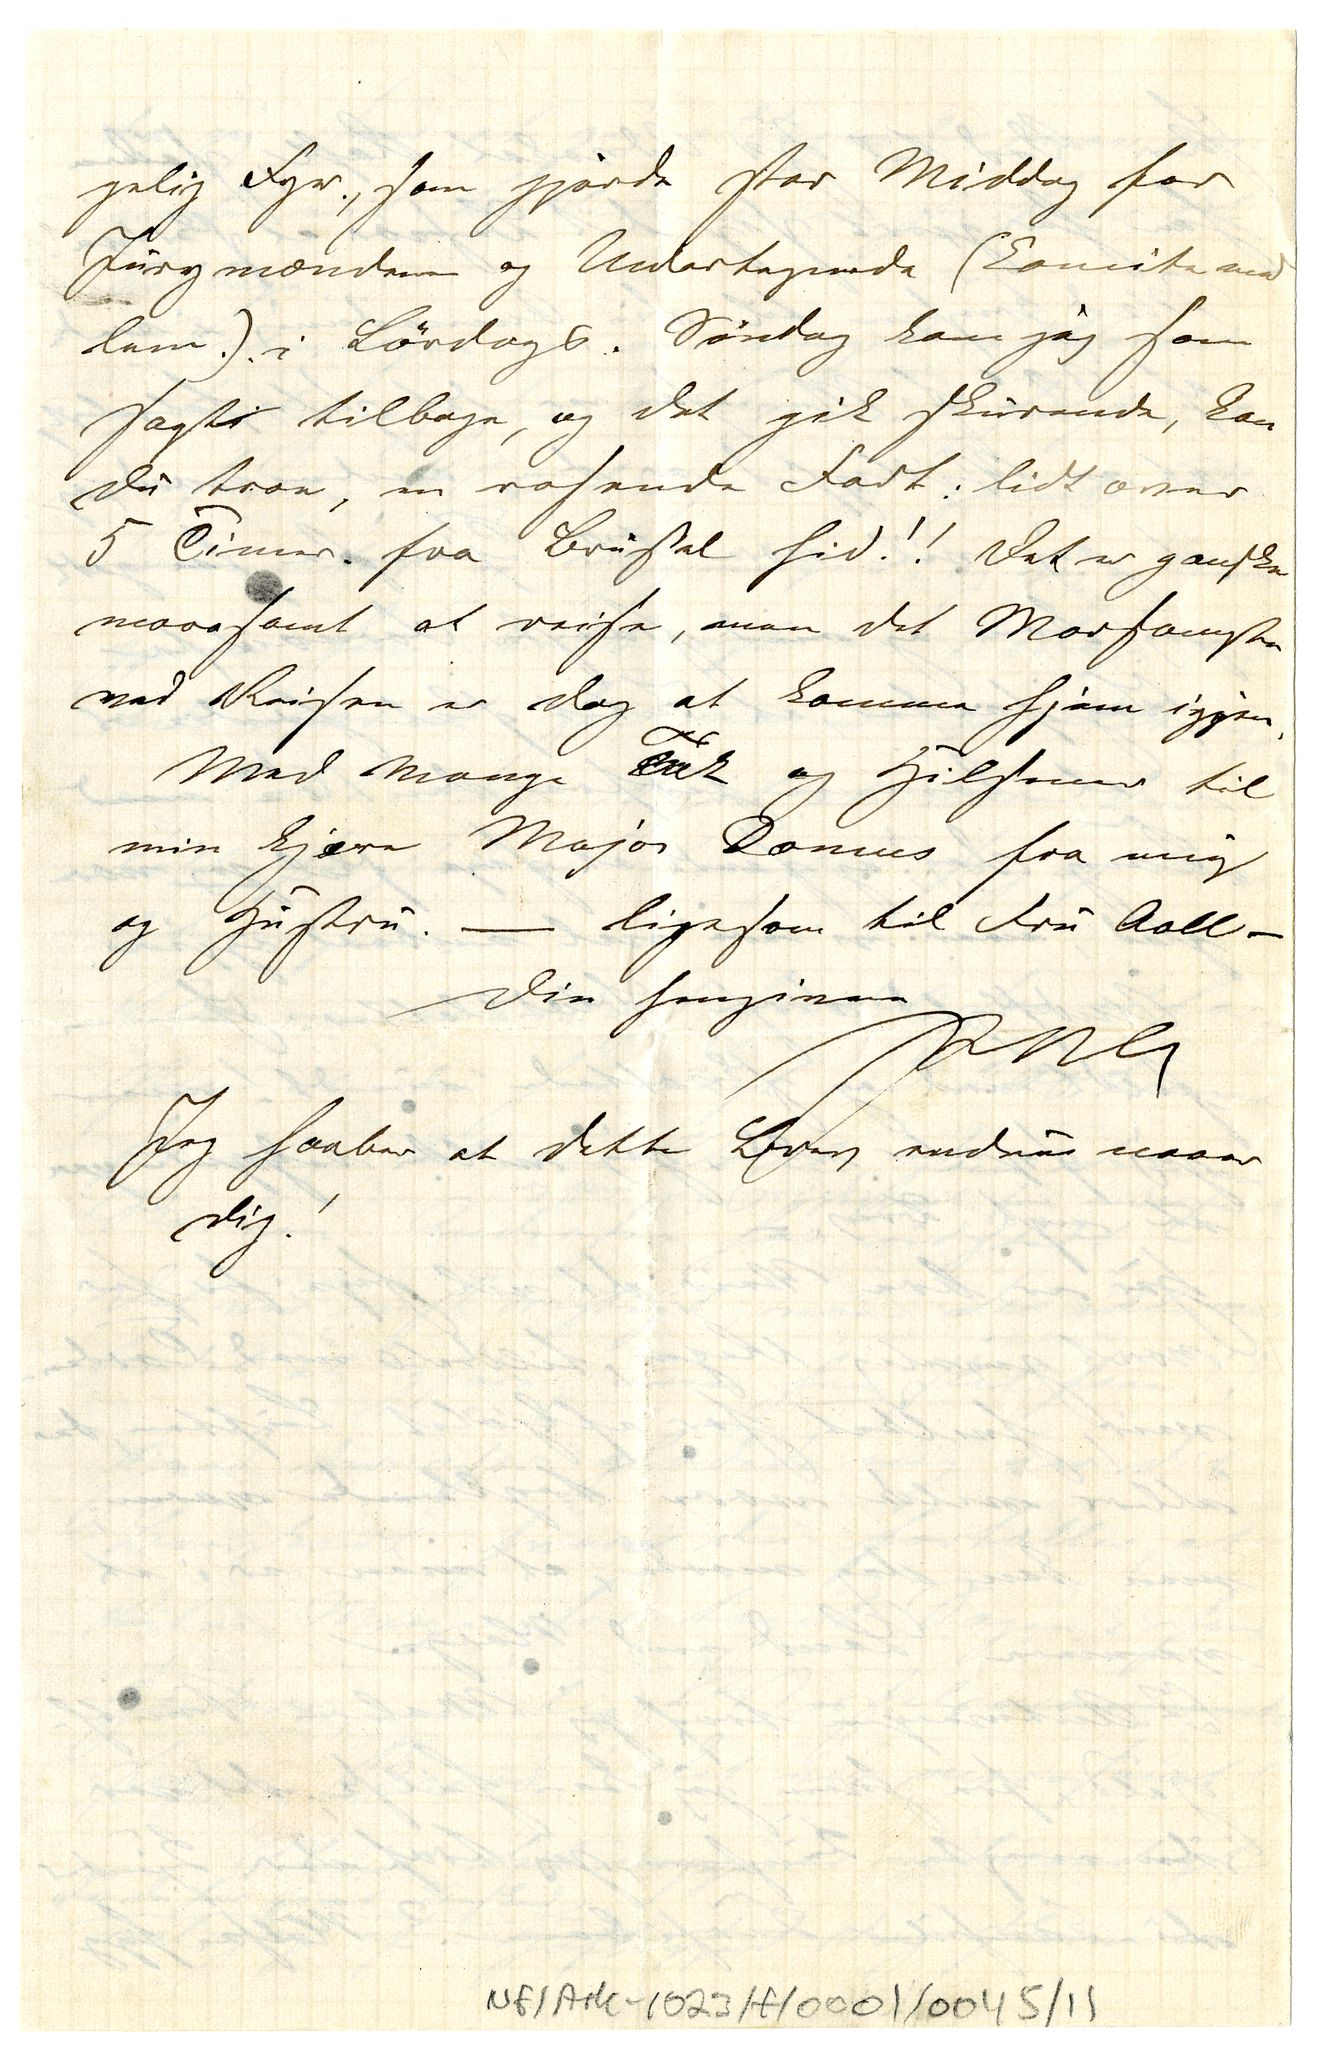 gelig Fyr., som gjorde stor Middag for
Jurymændene og Undertegnede (Komitemed
lem.). i Lørdags. Søndag kom jeg som
sagt tilbage, og det gik skurende, kan
du troe, en rasende Fart: lidt over
5 Timer. fra Brüssel hid!! Det er ganske
morosamt at reise, men det Morsomste
ved Reisen er dog at komme hjem igjen.
Med mange Tak og Hilsener til
min kjære Major Domus fra mig
og Hustru. — ligesom til Fru Aall —
Din hengivne
Jeg haaber at dette Brev endnu naaer
dig!
NF/Ark-1023/F/0001/0045/11